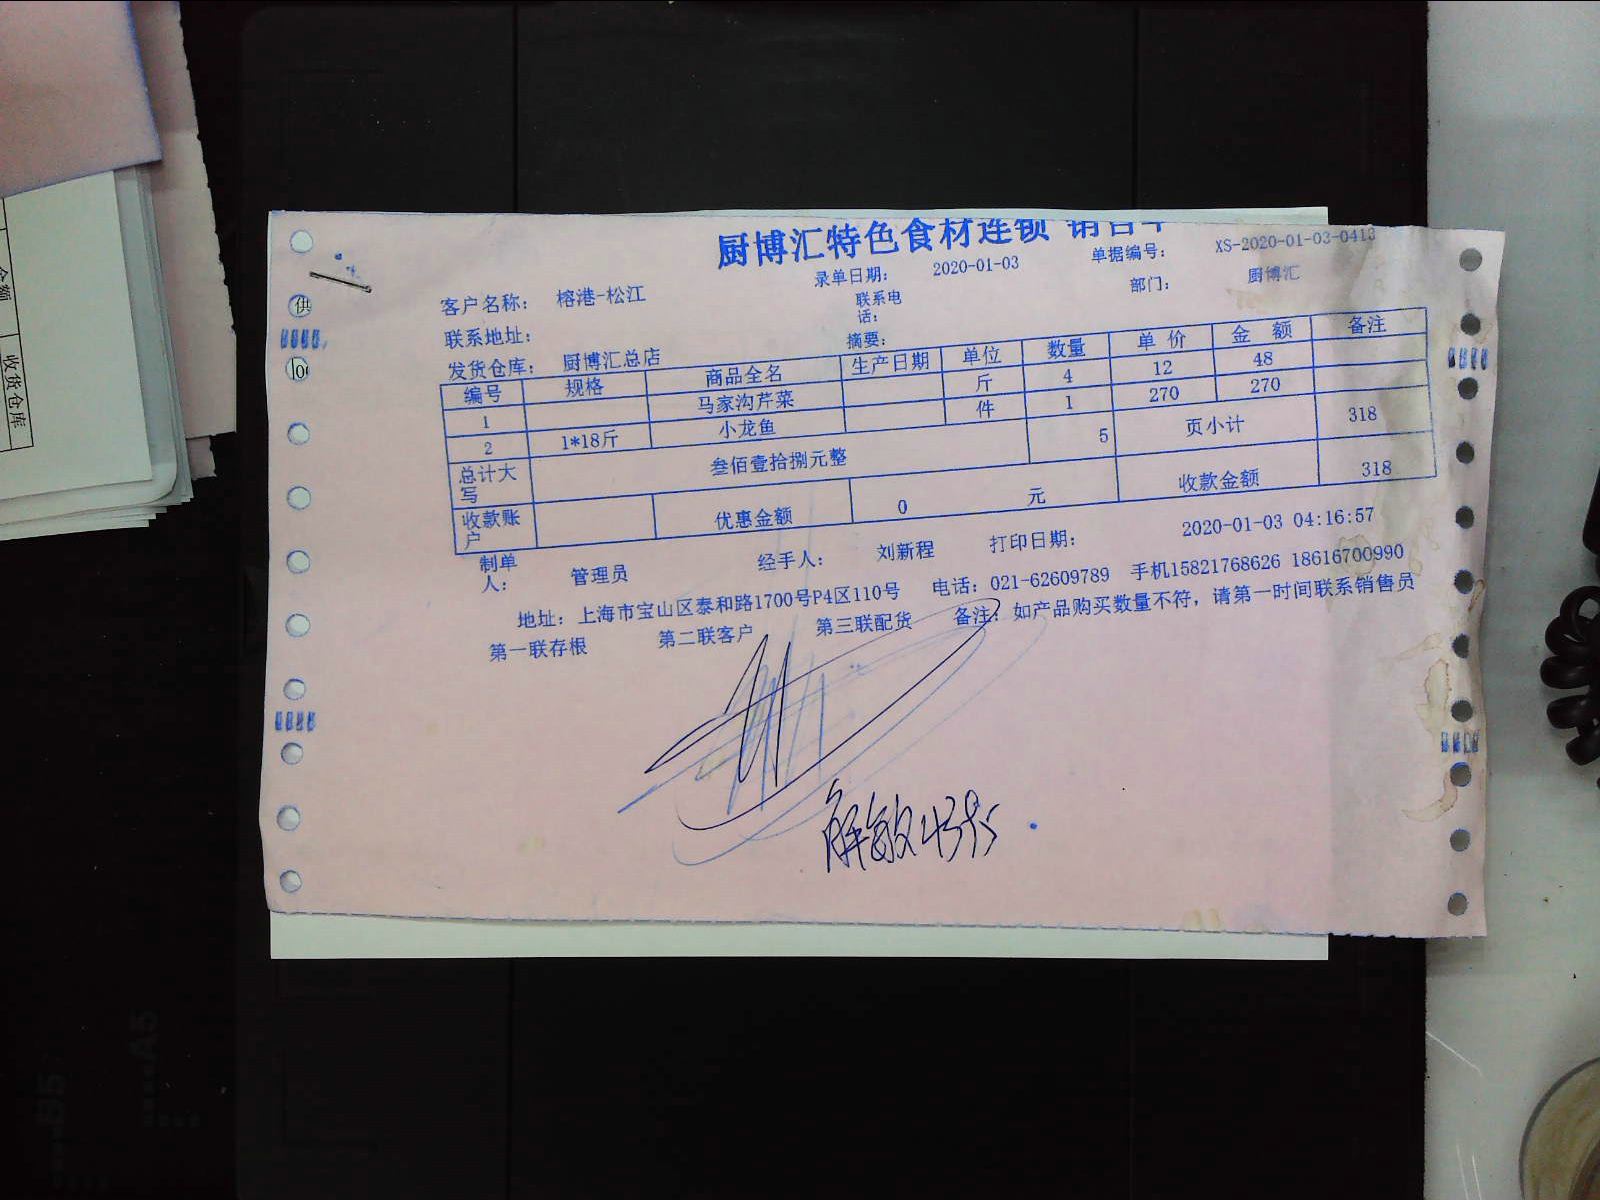 厨博汇特色食材连锁 销售单
录单日期： 2020-01-03 单据编号： XS-2020-01-03-0413
客户名称： 榕港-松江 联系电话： 部门： 厨博汇
联系地址： 摘要：
发货仓库： 厨博汇总店
编号 规格 商品全名 生产日期 单位 数量 单价 金额 备注
1 马家沟芹菜 斤 4 12 48
2 1*18斤 小龙鱼 件 1 270 270
总计大写 叁佰壹拾捌元整 5 页小计 318
收款账户 优惠金额 0 元 收款金额 318
制单人： 管理员 经手人： 刘新程 打印日期： 2020-01-03 04:16:57
地址：上海市宝山区泰和路1700号P4区110号 电话：021-62609789 手机15821768626 18616700990
第一联存根 第二联客户 第三联配货 备注：如产品购买数量不符，请第一时间联系销售员
供
收货仓库
金额
B5
A5